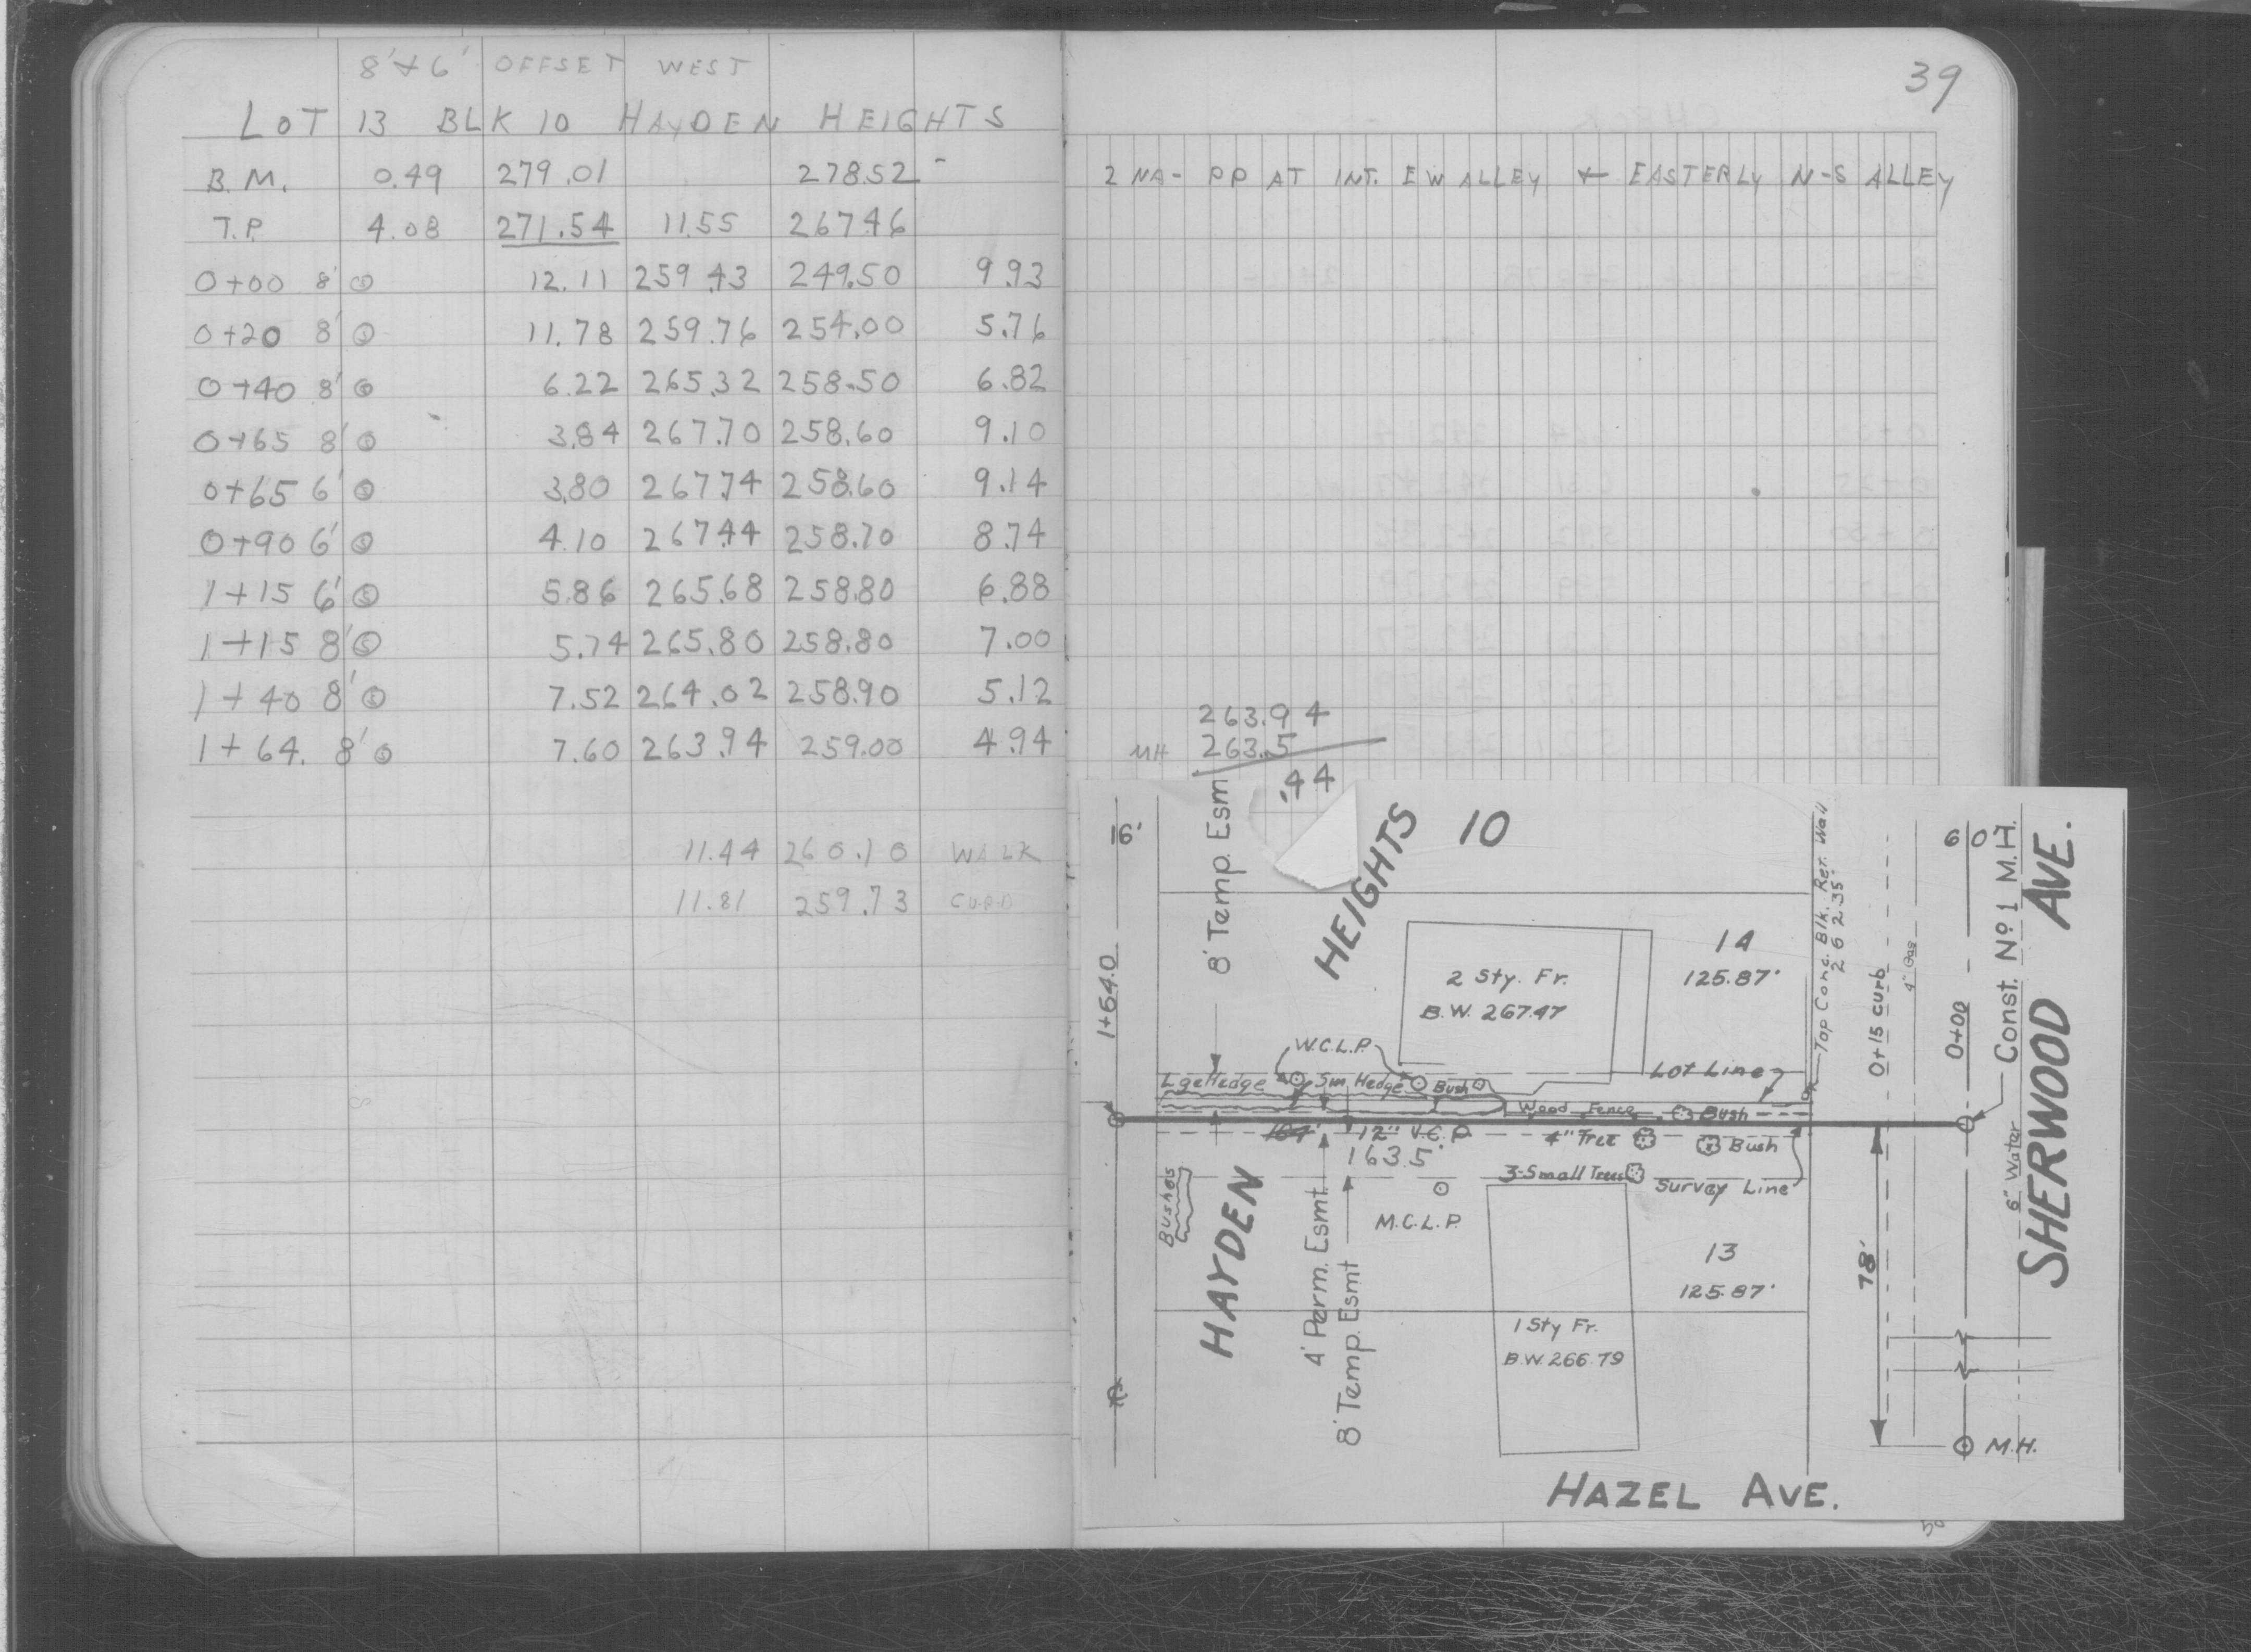 8' & 6' OFFSET WEST
LOT 13 BLK 10 HAYDEN HEIGHTS
B.M. 0.49 279.01 278.52
T.P. 4.08 271.54 11.55 267.46
0+00 8' 12.11 259.43 249.50 9.93
0+20 8' 11.78 259.76 254.00 5.76
0+40 8' 6.22 265.32 258.50 6.82
0+65 8' 3.84 267.70 258.60 9.10
0+65 6' 3.80 267.74 258.60 9.14
0+90 6' 4.10 267.44 258.70 8.74
1+15 6' 5.86 265.68 258.80 6.88
1+15 8' 5.74 265.80 258.80 7.00
1+40 8' 7.52 264.02 258.90 5.12
1+64. 8' 7.60 263.94 259.00 4.94
11.44 260.10 WALK
11.81 259.73 CURB
39
2 NA- PP AT INT. EW ALLEY & EASTERLY N-S ALLEY
263.94
MH 263.5
.44
16'
8' Temp. Esm
HEIGHTS
10
Top Conc. Blk. Ret. Wall
262.35
60
1+64.0
2 Sty. Fr.
B.W. 267.47
14
125.87'
4" Gas
0+15 curb
0+00
Const. No 1 M.H.
SHERWOOD AVE.
W.C.L.P.
Lge Hedge
Sm. Hedge
Bush
Lot Line
Wood Fence
Bush
164'
12" V.C.P.
4" Tree
Bush
163.5'
3-Small Trees
Survey Line
6" Water
Bushes
HAYDEN
4' Perm. Esmt.
8' Temp. Esmt
M.C.L.P.
13
125.87'
78'
1 Sty Fr.
B.W. 266.79
M.H.
HAZEL AVE.